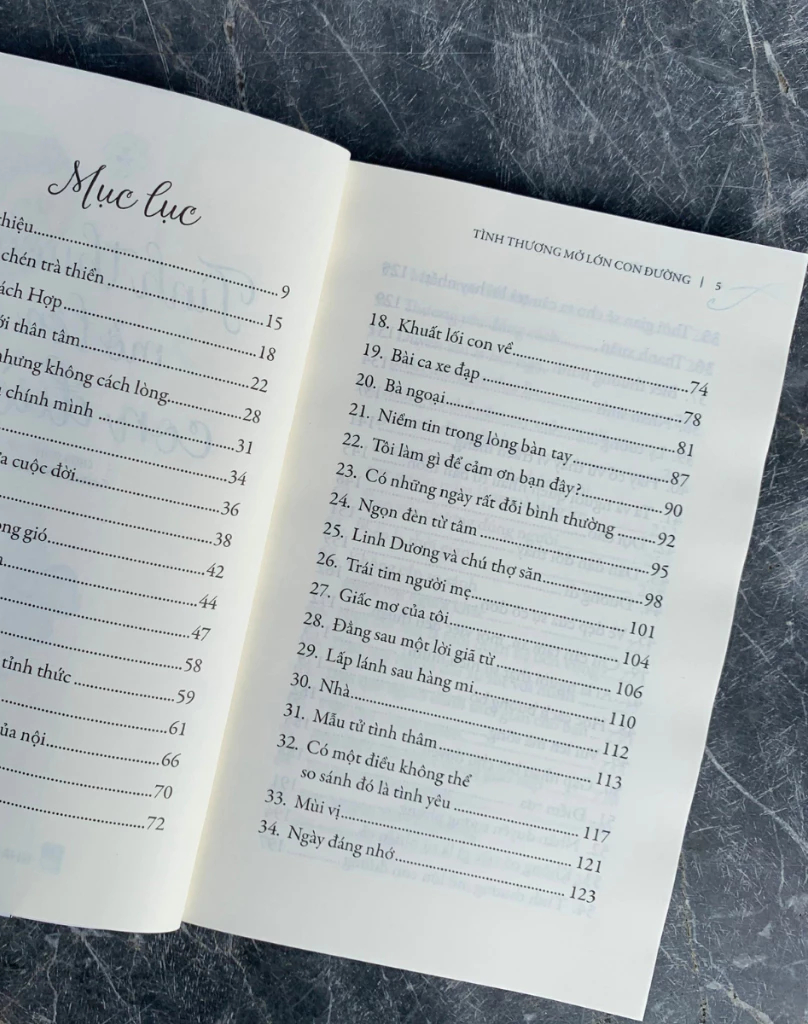 Mục lục
thiệu 9
chén trà thiền 15
ách Hợp 18
ới thân tâm 22
nhưng không cách lòng 28
chính mình 31
34
cuộc đời 36
38
ong gió 42
44
47
58
tỉnh thức 59
61
ủa nội 66
70
72
TÌNH THƯƠNG MỞ LỚN CON ĐƯỜNG | 5
18. Khuất lối con về 74
19. Bài ca xe đạp 78
20. Bà ngoại 81
21. Niềm tin trong lòng bàn tay 87
22. Tôi làm gì để cảm ơn bạn đây? 90
23. Có những ngày rất đỗi bình thường 92
24. Ngọn đèn từ tâm 95
25. Linh Dương và chú thợ săn 98
26. Trái tim người mẹ 101
27. Giấc mơ của tôi 104
28. Đằng sau một lời giã từ 106
29. Lấp lánh sau hàng mi 110
30. Nhà 112
31. Mẫu tử tình thâm 113
32. Có một điều không thể
so sánh đó là tình yêu 117
33. Mùi vị 121
34. Ngày đáng nhớ 123